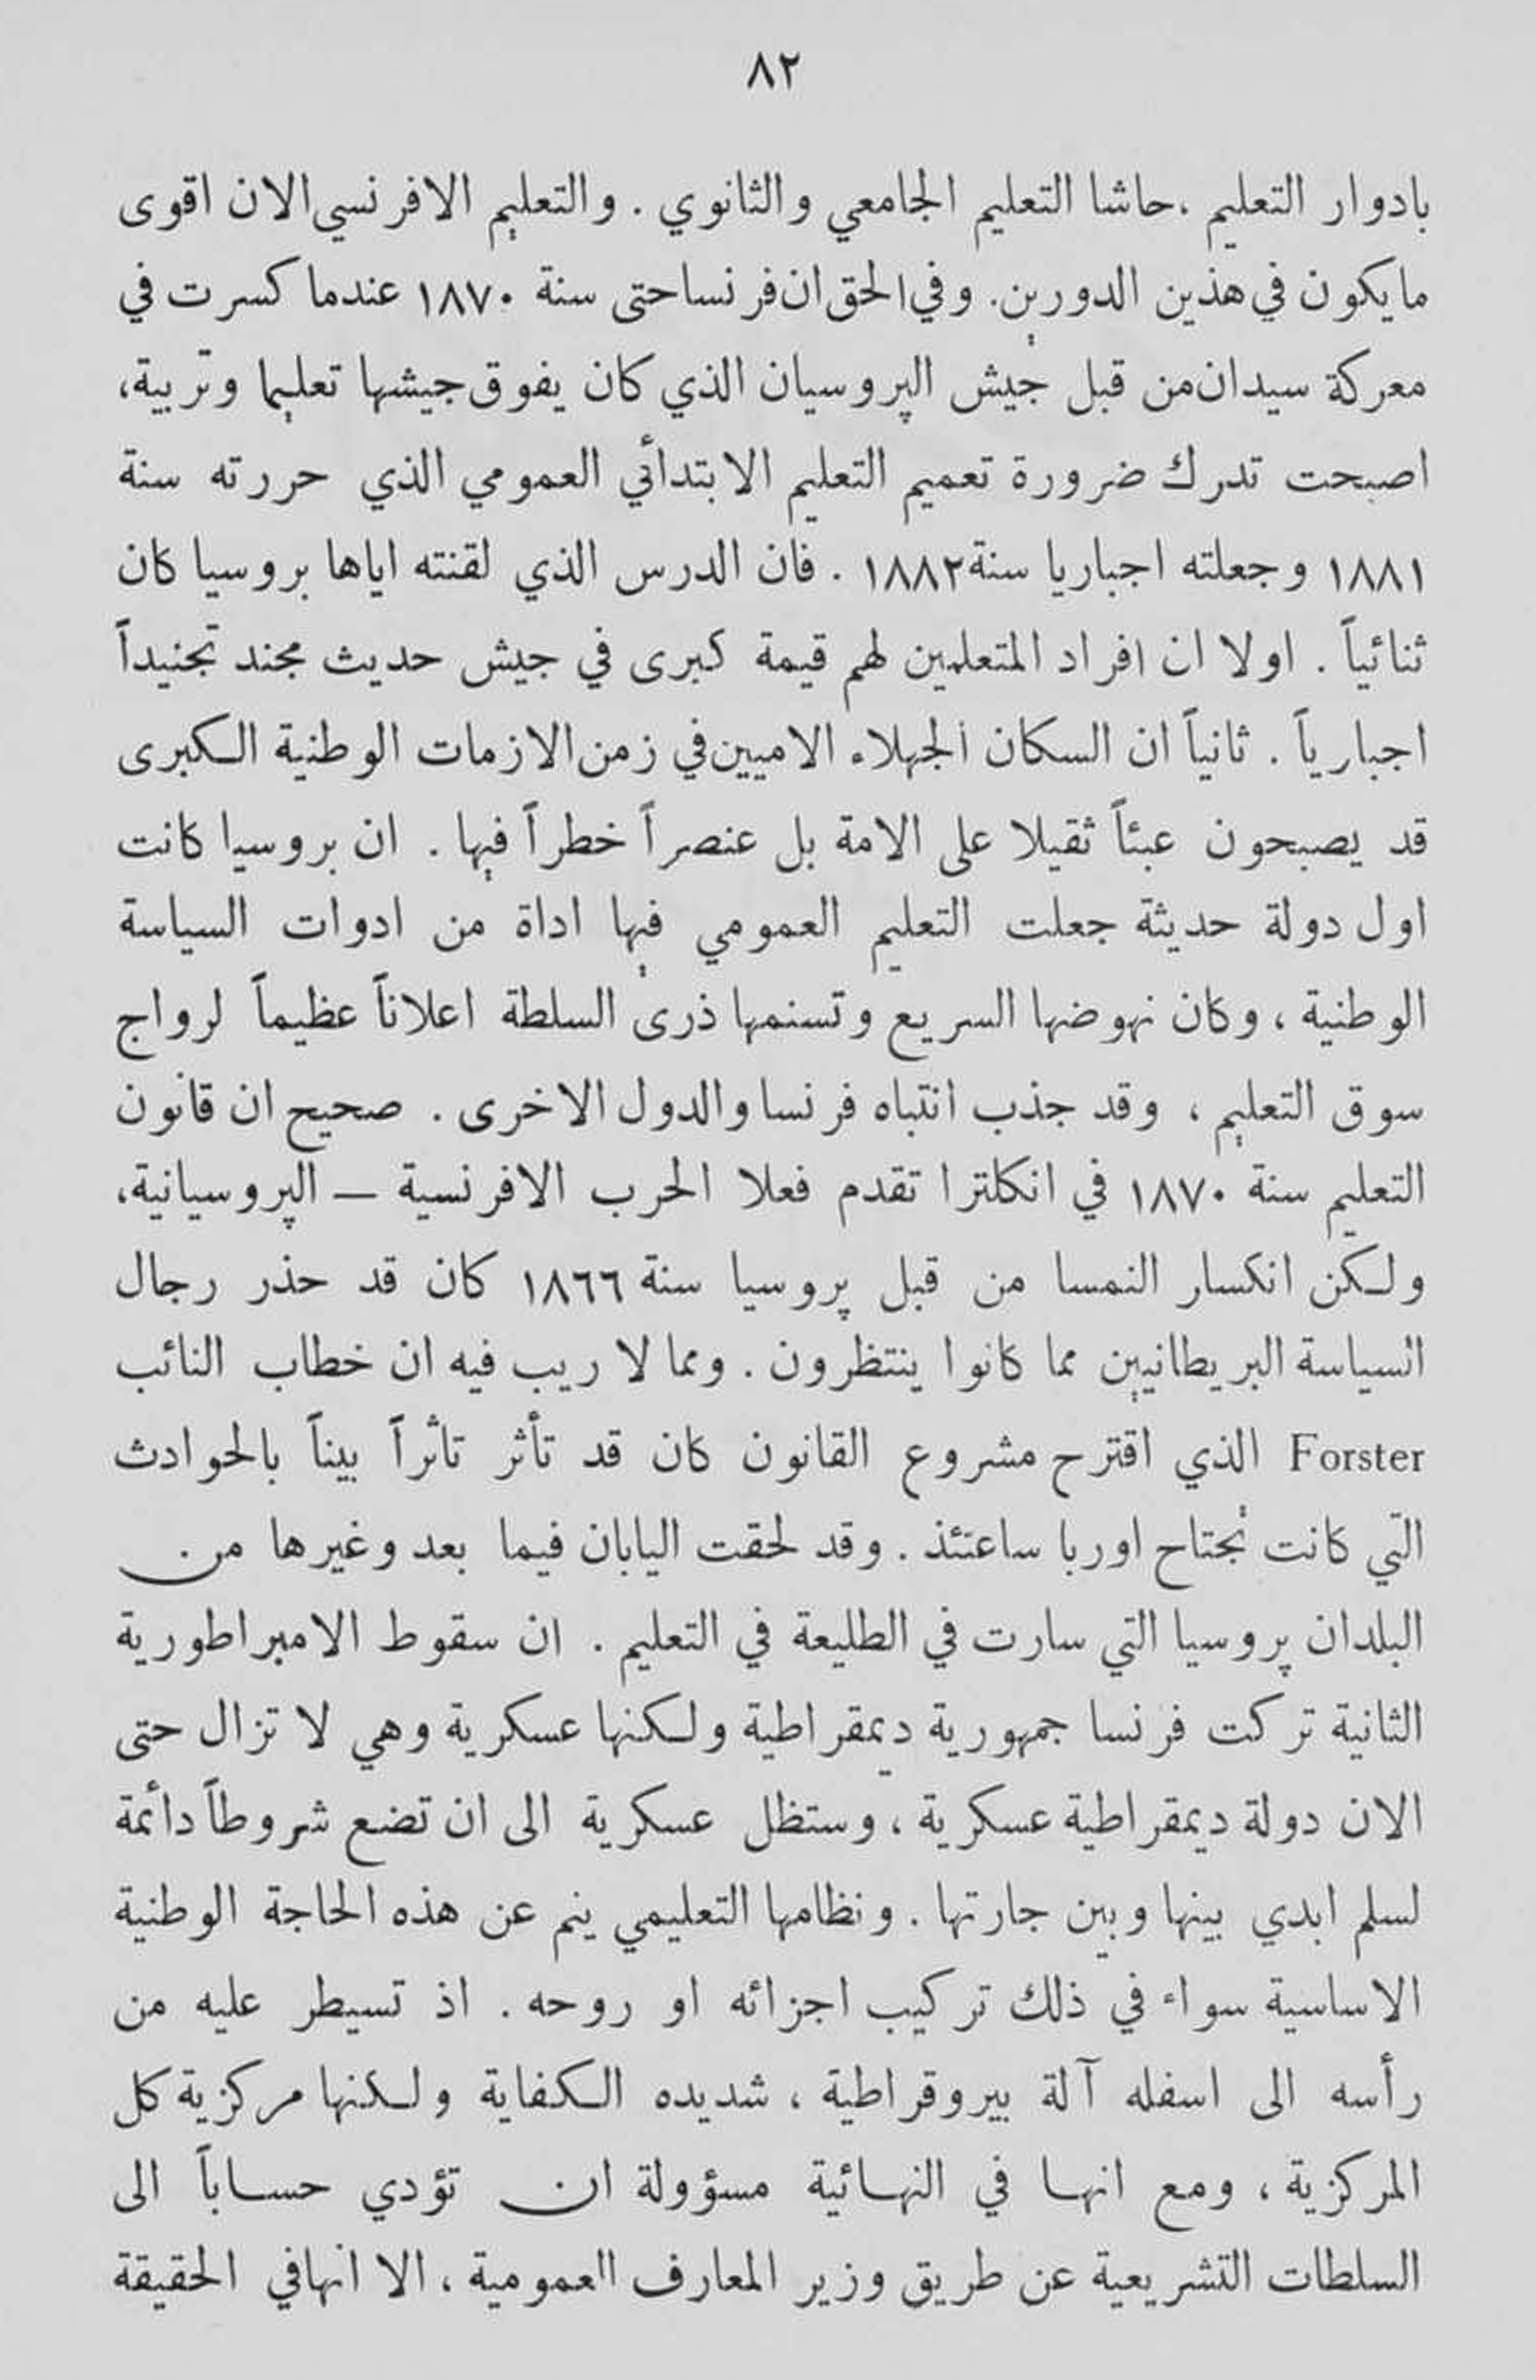 ٨٢
بادوار التعليم ، حاشا التعليم الجامعي والثانوي . والتعليم الافرنسي الان اقوى
ما يكون في هذين الدورين . وفي الحق ان فرنسا حتى سنة ١٨٧٠ عندما كسرت في
معركة سيدان من قبل جيش الپروسيان الذي كان يفوق جيشها تعليما وتربية ،
اصبحت تدرك ضرورة تعميم التعليم الابتدأئي العمومي الذي حررته سنة
١٨٨١ وجعلته اجباريا سنة ١٨٨٢ . فان الدرس الذي لقنته اياها بروسيا كان
ثنائياً . اولا ان افراد المتعلمين لهم قيمة كبرى في جيش حديث مجند تجنيداً
اجبارياً . ثانياً ان السكان الجهلاء الاميين في زمن الازمات الوطنية الكبرى
قد يصبحون عبئاً ثقيلا على الامة بل عنصراً خطراً فيها . ان بروسيا كانت
اول دولة حديثة جعلت التعليم العمومي فيها اداة من ادوات السياسة
الوطنية ، وكان نهوضها السريع وتسنمها ذرى السلطة اعلاناً عظيماً لرواج
سوق التعليم ، وقد جذب انتباه فرنسا والدول الاخرى . صحيح ان قانون
التعليم سنة ١٨٧٠ في انكلترا تقدم فعلا الحرب الافرنسية — الپروسيانية ،
ولكن انكسار النمسا من قبل پروسيا سنة ١٨٦٦ كان قد حذر رجال
السياسة البريطانيين مما كانوا ينتظرون . ومما لا ريب فيه ان خطاب النائب
Forster الذي اقترح مشروع القانون كان قد تأثر تاثراً بيناً بالحوادث
التي كانت تجتاح اوربا ساعتئذ . وقد لحقت اليابان فيما بعد وغيرها من
البلدان پروسيا التي سارت في الطليعة في التعليم . ان سقوط الامبراطورية
الثانية تركت فرنسا جمهورية ديمقراطية ولكنها عسكرية وهي لا تزال حتى
الان دولة ديمقراطية عسكرية ، وستظل عسكرية الى ان تضع شروطاً دأئمة
لسلم ابدي بينها وبين جارتها . ونظامها التعليمي ينم عن هذه الحاجة الوطنية
الاساسية سواء في ذلك تركيب اجزائه او روحه . اذ تسيطر عليه من
رأسه الى اسفله آلة بيروقراطية ، شديده الكفاية ولكنها مركزية كل
المركزية ، ومع انها في النهائية مسؤولة ان تؤدي حساباً الى
السلطات التشريعية عن طريق وزير المعارف العمومية ، الا انها في الحقيقة